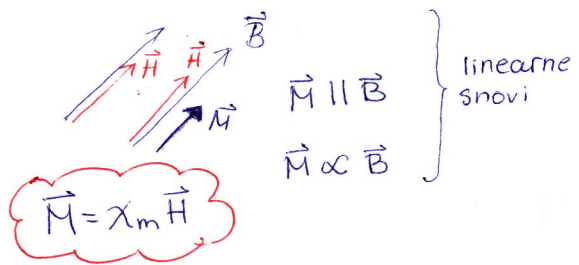 B⃗
H⃗ H⃗
M⃗
M⃗ || B⃗
M⃗ ∝ B⃗
linearne
snovi
M⃗ = χₘ H⃗